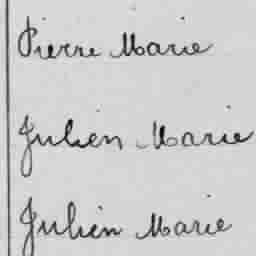 Pierre Marie
Julien Marie
Julien Marie